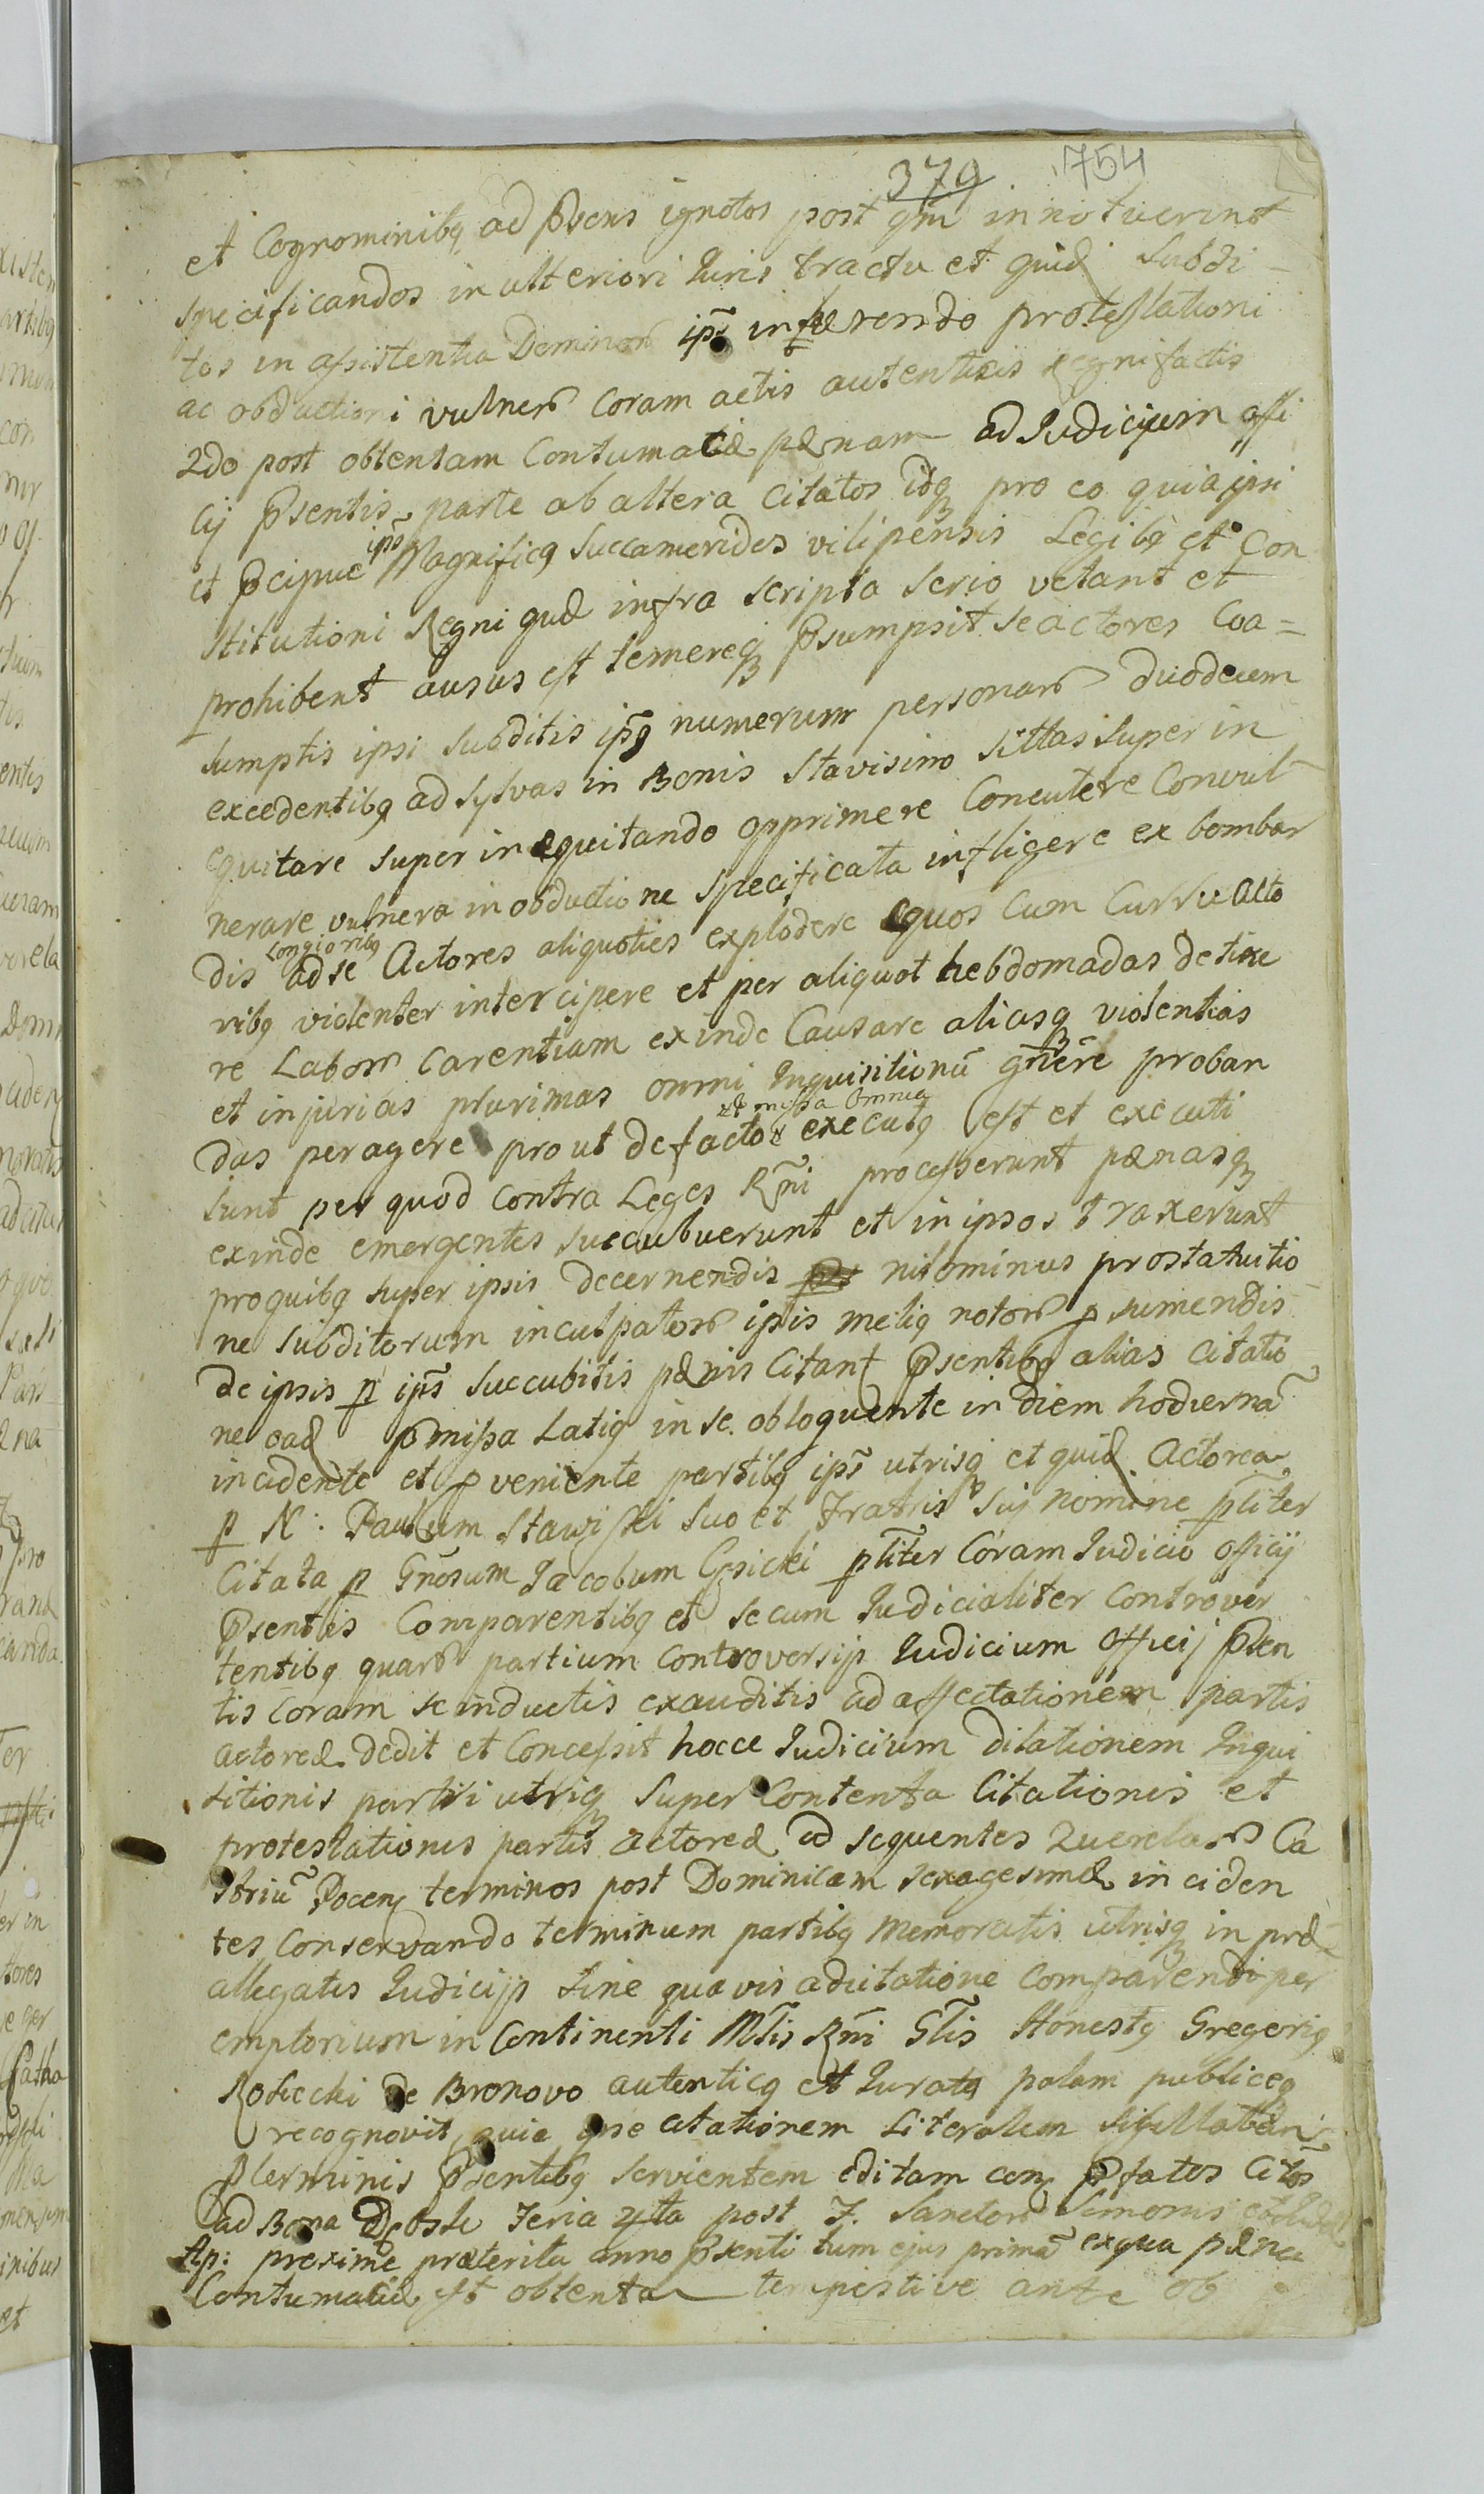 379 754
et Cognominibq ad Psens ignotos post qm innotuerint
specificandos in ulteriori Iuris tractu et quidȩ Subdi-
tos in assistentia Dominor ips inhærendo protestationi
ac obductioni vulner Coram actis autenticis Regni factis
2do post obtentam Contumaciæ pænam ad Iudicium offi
cij Psentis parte ab altera Citatos idq pro eo quia ipsi
et Pcipue ipse Magnificq Succamerides vilipensis Legibq et Con
stitutioni Regni quæ infra scripta serio vetant et
prohibent ausus est temereq Psumpsit se actores Coa=
sumptis ipsi subditis ipsq numerum personar duodecim
excedentibq ad sylvas in Bonis Stavisino sittas super in
equitare super inæquitando opprimere Concutere Convul-
nerare vulnera in obductione specificata infligere ex bombar
dis longioribq ad se Actores aliquoties explodere equos Cum Curru acto
ribq violenter intercipere et per aliquot hebdomadas detine
re Labor Carentiam exinde Causare aliasq violentias
et injurias plurimas omni Inquisitionũ gnere proban
das peragere prout de facto Pmissa Omnia executq est et executi
sunt per quod contra Leges Rni processerunt pænasq
exinde emergentes succubuerunt et in ipsos traxerunt
proquibq super ipsis decernendis nilominus pro statuitio
ne subditorum inculpator ipsis meliq notor p sumendis
de ipsis p ips succubitis pænis Citant Psentibq alias Citatio
ne eadȩ Pmissa Latiq in se obloquente in diem hodiernã
incidente et pveniente partibq ips utrisq et quidȩ Actorea
p N: Paulum Stawiski suo et Fratris sui nomine pliter
Citata p Gnosum Jacobum Gsicki pliter Coram Iudicio officij
Psentis Comparentibq et secum Iudicialiter controver
tentibq quar partium controversijs Iudicium Officij Psen
tis Coram se inductis exauditis ad affectationem partis
actoreæ dedit et Concessit hocce Iudicium dilationem Inqui
sitionis partii utriq super Contenta Citationis et
protestationis partis actoreæ ad sequentes Querelar Ca
striũ Rocen terminos post Dominicam sexagesimæ inciden
tes conservando terminum partibq memoratis utrisq in præ-
allegatis Iudicijs sine quavis adcitatione comparendi per
emptorium in Continenti Mtis Rni Glis Honestq Gregoriq
Rosiecki de Bronovo autenticq et Iuratq palam publiceq
recognovit quia ipse citationem Literalem sigillatam
p terminis Psentibq servientem editam conȩ Pfatos Citos
ad Bona Dębsk Feria 4ta post F. Sanctor Simonis et Iudæ
Ap: proxime præterita anno Psenti tum ejus primã exqua pæna
Contumaciæ est obtenta tempestive ante ob